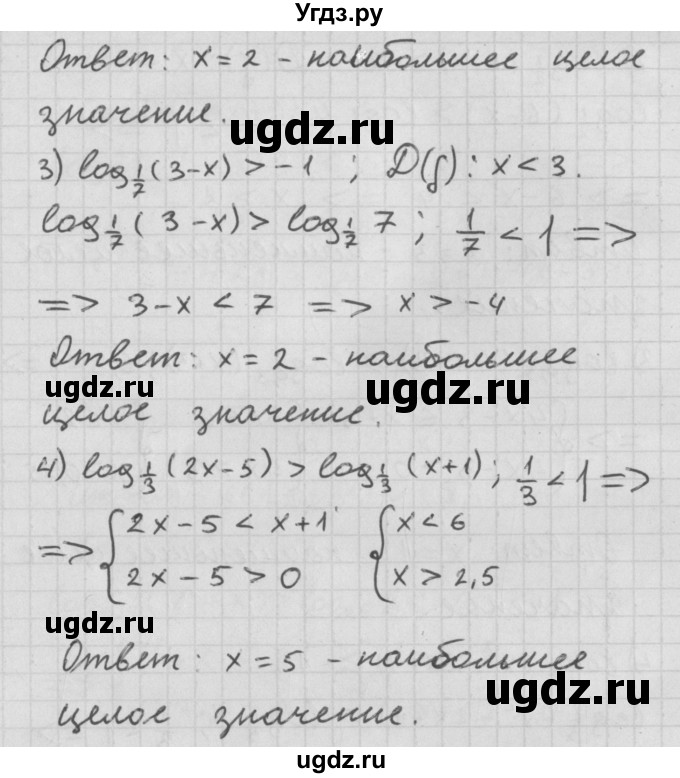 Угдз.ру
Ответ: x = 2 - наибольшее целое
значение.
ugdz.ru
3) log_{1/7}(3-x) > -1 ; D(f): x < 3.
log_{1/7}(3-x) > log_{1/7} 7 ; 1/7 < 1 =>
=> 3-x < 7 => x > -4
Ответ: x = 2 - наибольшее
ugdz.ru ugdz.ru
целое значение.
4) log_{1/3}(2x-5) > log_{1/3}(x+1) ; 1/3 < 1 =>
=> { 2x-5 < x+1 { x < 6
2x-5 > 0 x > 2,5
ugdz.ru
Ответ: x = 5 - наибольшее
ugdz.ru
целое значение.
ugdz.ru